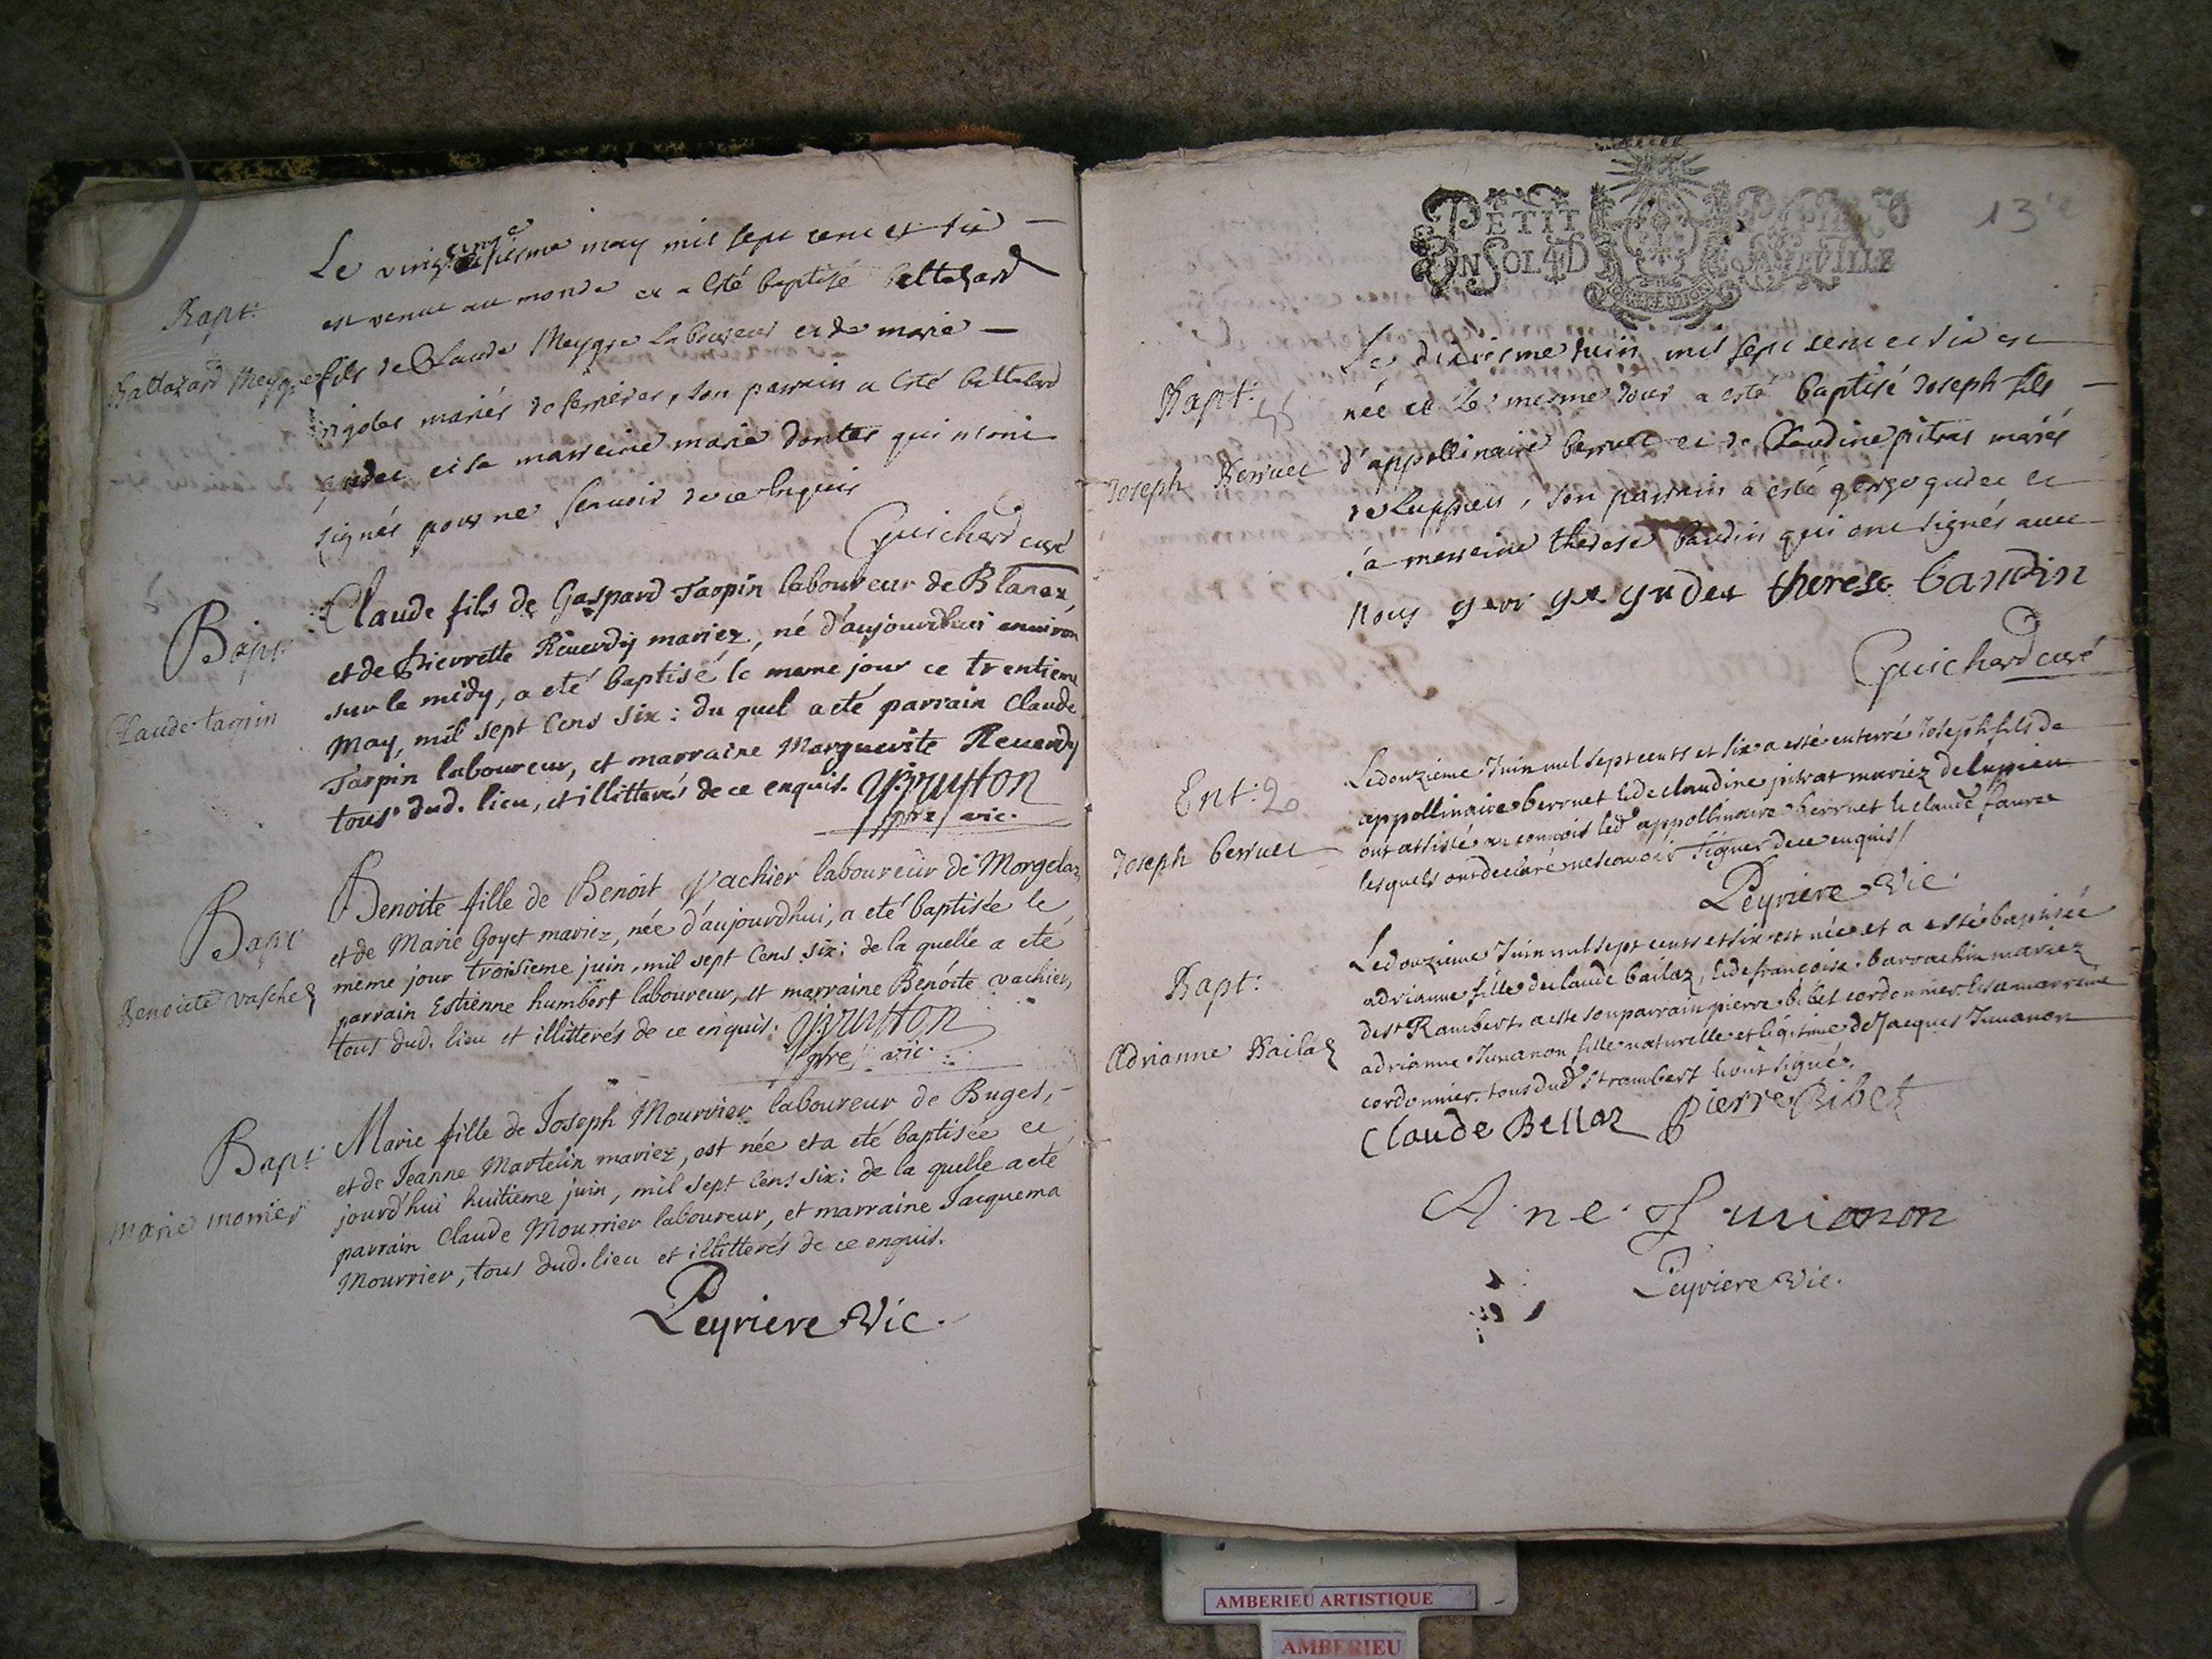 Le vingt cinq may mil sept cent et six
est venu au monde et a esté baptisé baltazard
Bapt:
Baltazard Meygre
fils de Claude Meygre laboureur et de marie
mariés de serrieres, son parrain a esté baltazard
gudet et sa marreine marie qui n'ont
signés pour ne scavoir de ce enquis
Guichard curé
Bapt
Claude tarpin
Claude fils de Gaspard Tarpin laboureur de Blanaz,
et de Pierrette Reverdy mariez, né d'aujourdhui environ
sur le midy, a eté baptisé le meme jour ce trentieme
May, mil sept Cens six: du quel a eté parrain Claude
Tarpin laboureur, et marraine Marguerite Reverdy
tous dud. lieu, et illitterés de ce enquis. Bruyson
pre vic.
Bapt
Benoite vaschez
Benoite fille de Benoit Vachier laboureur de Morgelaz
et de Marie Goyet mariez, née d'aujourdhui, a eté baptisée le
meme jour troisieme juin, mil sept Cens six: de la quelle a eté
parrain Estienne humbert laboureur, et marraine Benoite vachier,
tous dud. lieu et illitterés de ce enquis. Bruyson
pre vic.
Bapt
Marie morrier
Marie fille de Joseph Mourrier laboureur de Buges,
et de Jeanne Martelin mariez, est née et a eté baptisée ce
jourd'hui huitieme juin, mil sept Cens six: de la quelle a eté
parrain Claude Mourrier laboureur, et marraine Jacquema
Mourrier, tous dud. lieu et illitterés de ce enquis.
Peyriere Vic.
PETIT PAPIER
EN SOL 4 D LA FEUILLE
13
Le dixiesme Juin mil sept cent et six est
Bapt:
né et le mesme Jour a esté baptisé Joseph fils
Joseph Berruet
d'appollinaire berruet et de Claudine pitrat mariés
de Luppieu, son parrain a esté gudet et
sa marreine therese baudin qui ont signés avec
nous gudet therese baudin
Guichard curé
Ent: 20
Joseph berruet
Le douzieme Juin mil sept cents et six a esté enterré Joseph fils de
appollinaire berruet & de claudine pitrat mariez de lupieu
ont assisté au convois led. appollinaire berruet & claude faure
lesquels ont declaré ne scavoir signer de ce enquis
Peyriere Vic.
Bapt:
Adrianne Bailaz
Le douzieme Juin mil sept cents et six est née et a esté baptisée
adrianne fille de claude bailaz, & de francoise barrachin mariez
de st Rambert. a esté son parrain pierre bibet cordonnier & sa marraine
adrianne Juvanon fille naturelle et légitime de Jacques Juvanon
cordonnier. tous dud. st rambert & ont signé.
Claude Bellaz Pierre Bibet
Ane Juvanon
Peyriere Vic.
AMBERIEU ARTISTIQUE
AMBERIEU